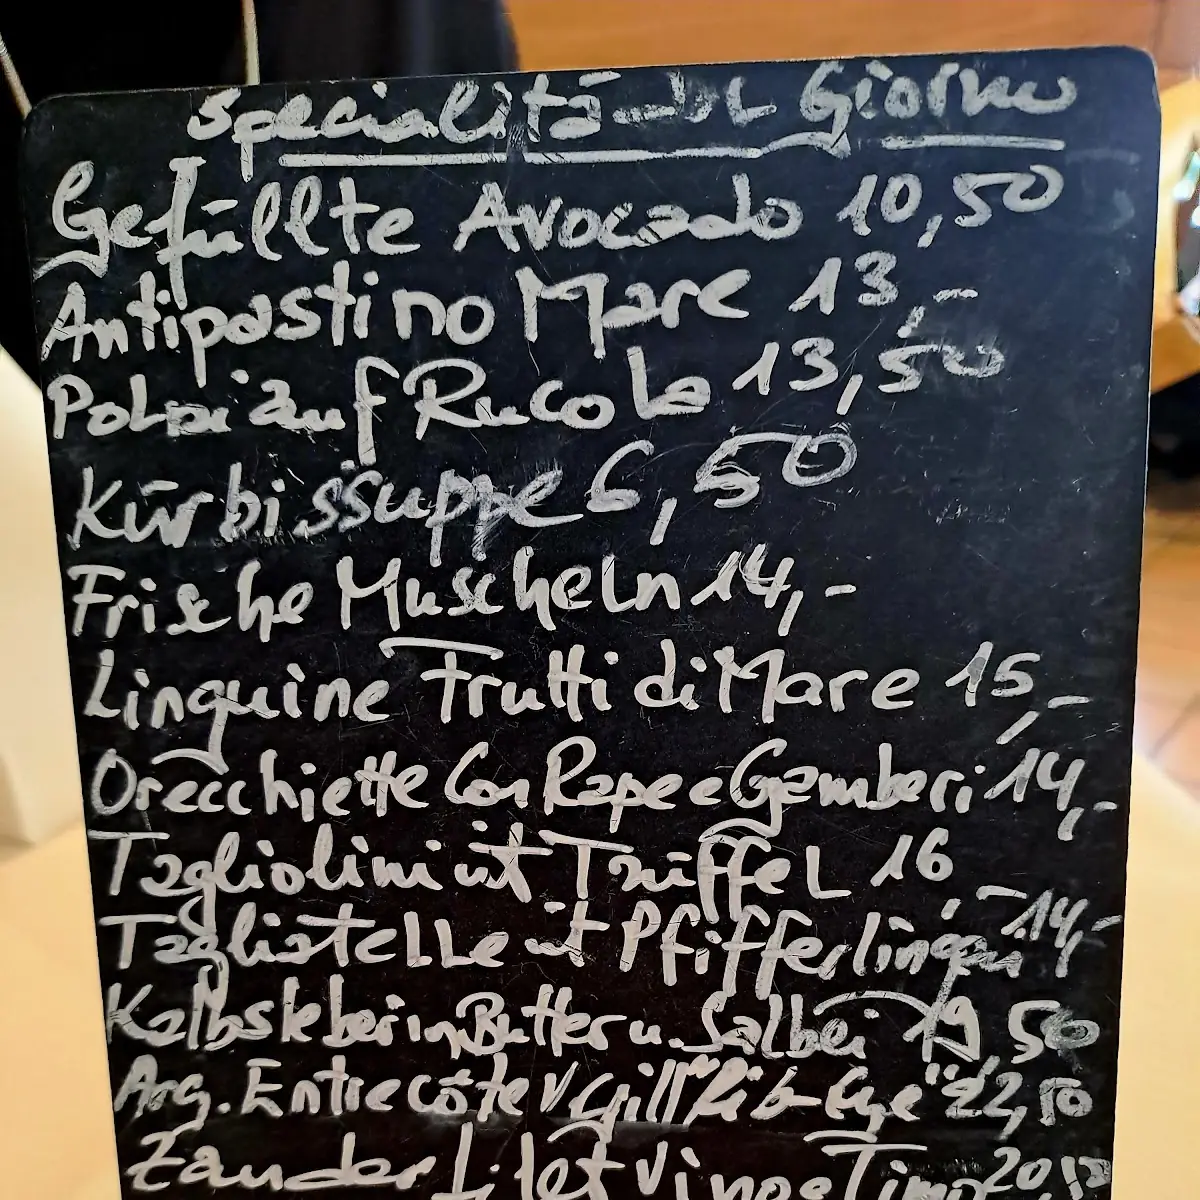 Specialità del Giorno
Gefüllte Avocado 10,50
Antipastino Mare 13,-
Polpo auf Rucola 13,50
Kürbissuppe 6,50
Frische Muscheln 14,-
Linguine Frutti di Mare 15,-
Orecchiette Con Rape e Gamberi 14,-
Tagliolini mit Trüffel 16,-
Tagliatelle mit Pfifferlingen 14,-
Kalbsleber in Butter u. Salbei 19,50
Arg. Entrecôte v Grill "Rib-Eye" 22,50
Zander Filet Vino e Timo